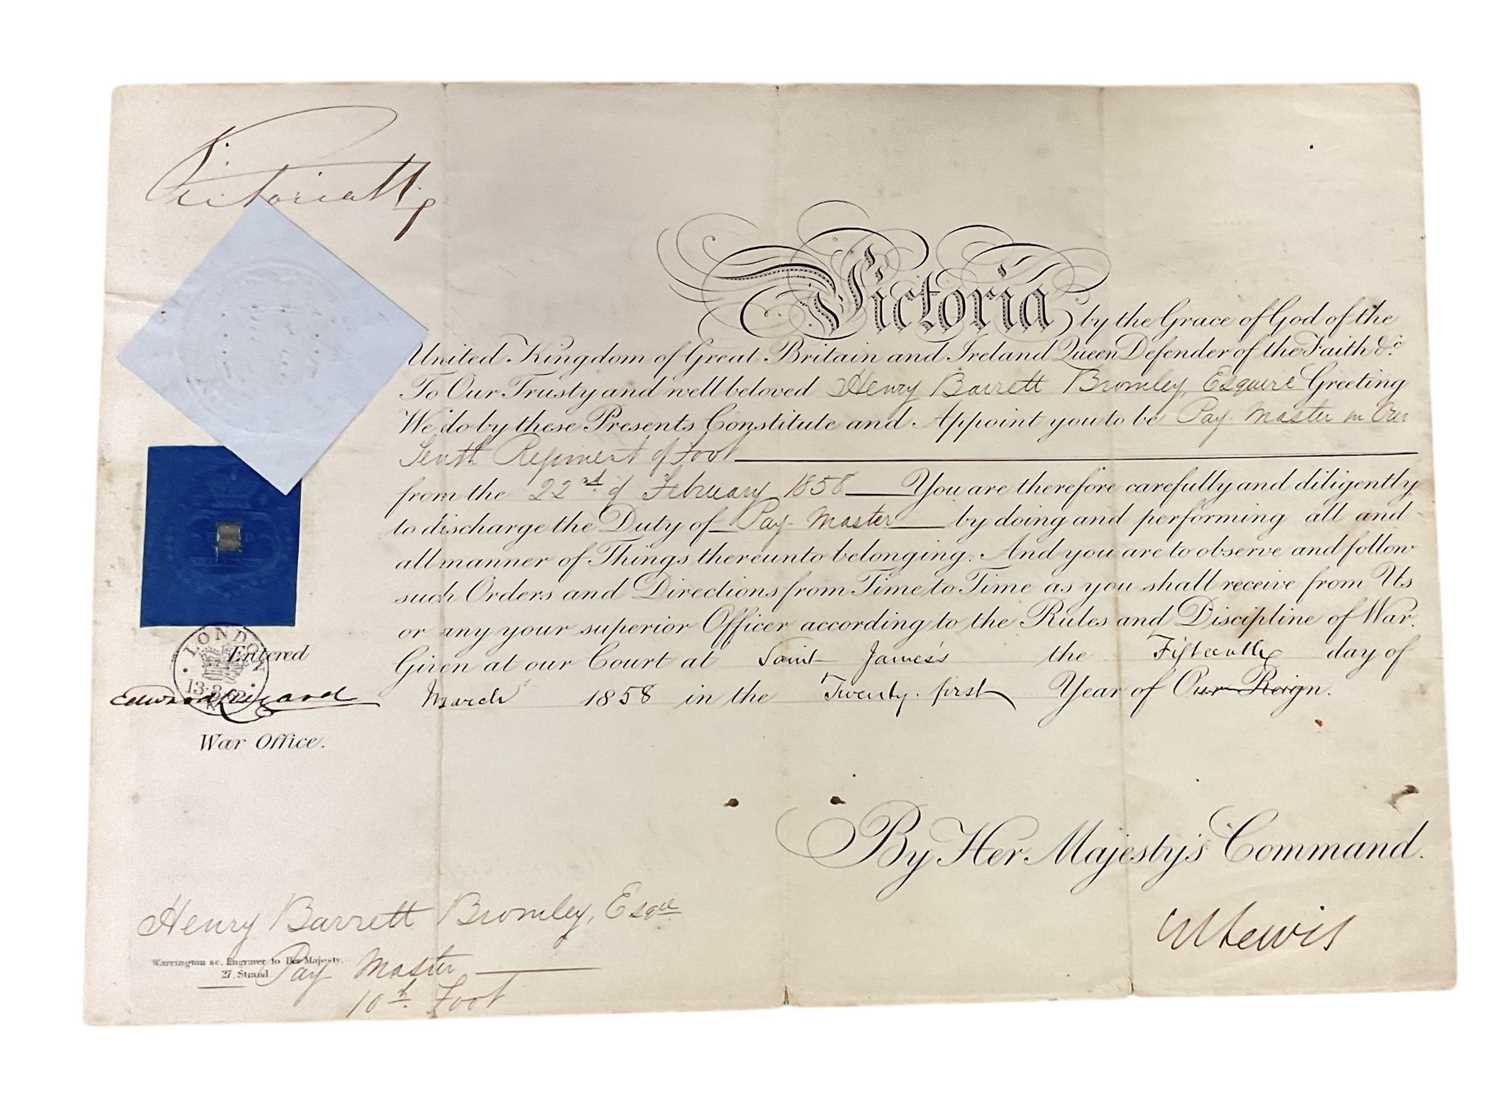 Victoria R
Victoria by the Grace of God of the
United Kingdom of Great Britain and Ireland Queen Defender of the Faith &c
To Our Trusty and well beloved Henry Barrett Bromley, Esquire Greeting
We do by these Presents Constitute and Appoint you to be Pay Master in Our
Tenth Regiment of Foot
from the 22nd of February 1858 You are therefore carefully and diligently
to discharge the Duty of Pay Master by doing and performing all and
all manner of Things thereunto belonging. And you are to observe and follow
such Orders and Directions from Time to Time as you shall receive from Us
or any your superior Officer according to the Rules and Discipline of War.
Given at our Court at Saint James's the Fifteenth day of
March 1858 in the Twenty-first Year of Our Reign.
LONDON
Entered
Edward
War Office.
By Her Majesty's Command.
Lewis
Henry Barrett Bromley, Esqre
Warrington sc. Engraver to Her Majesty.
27, Strand
Pay Master
10th Foot